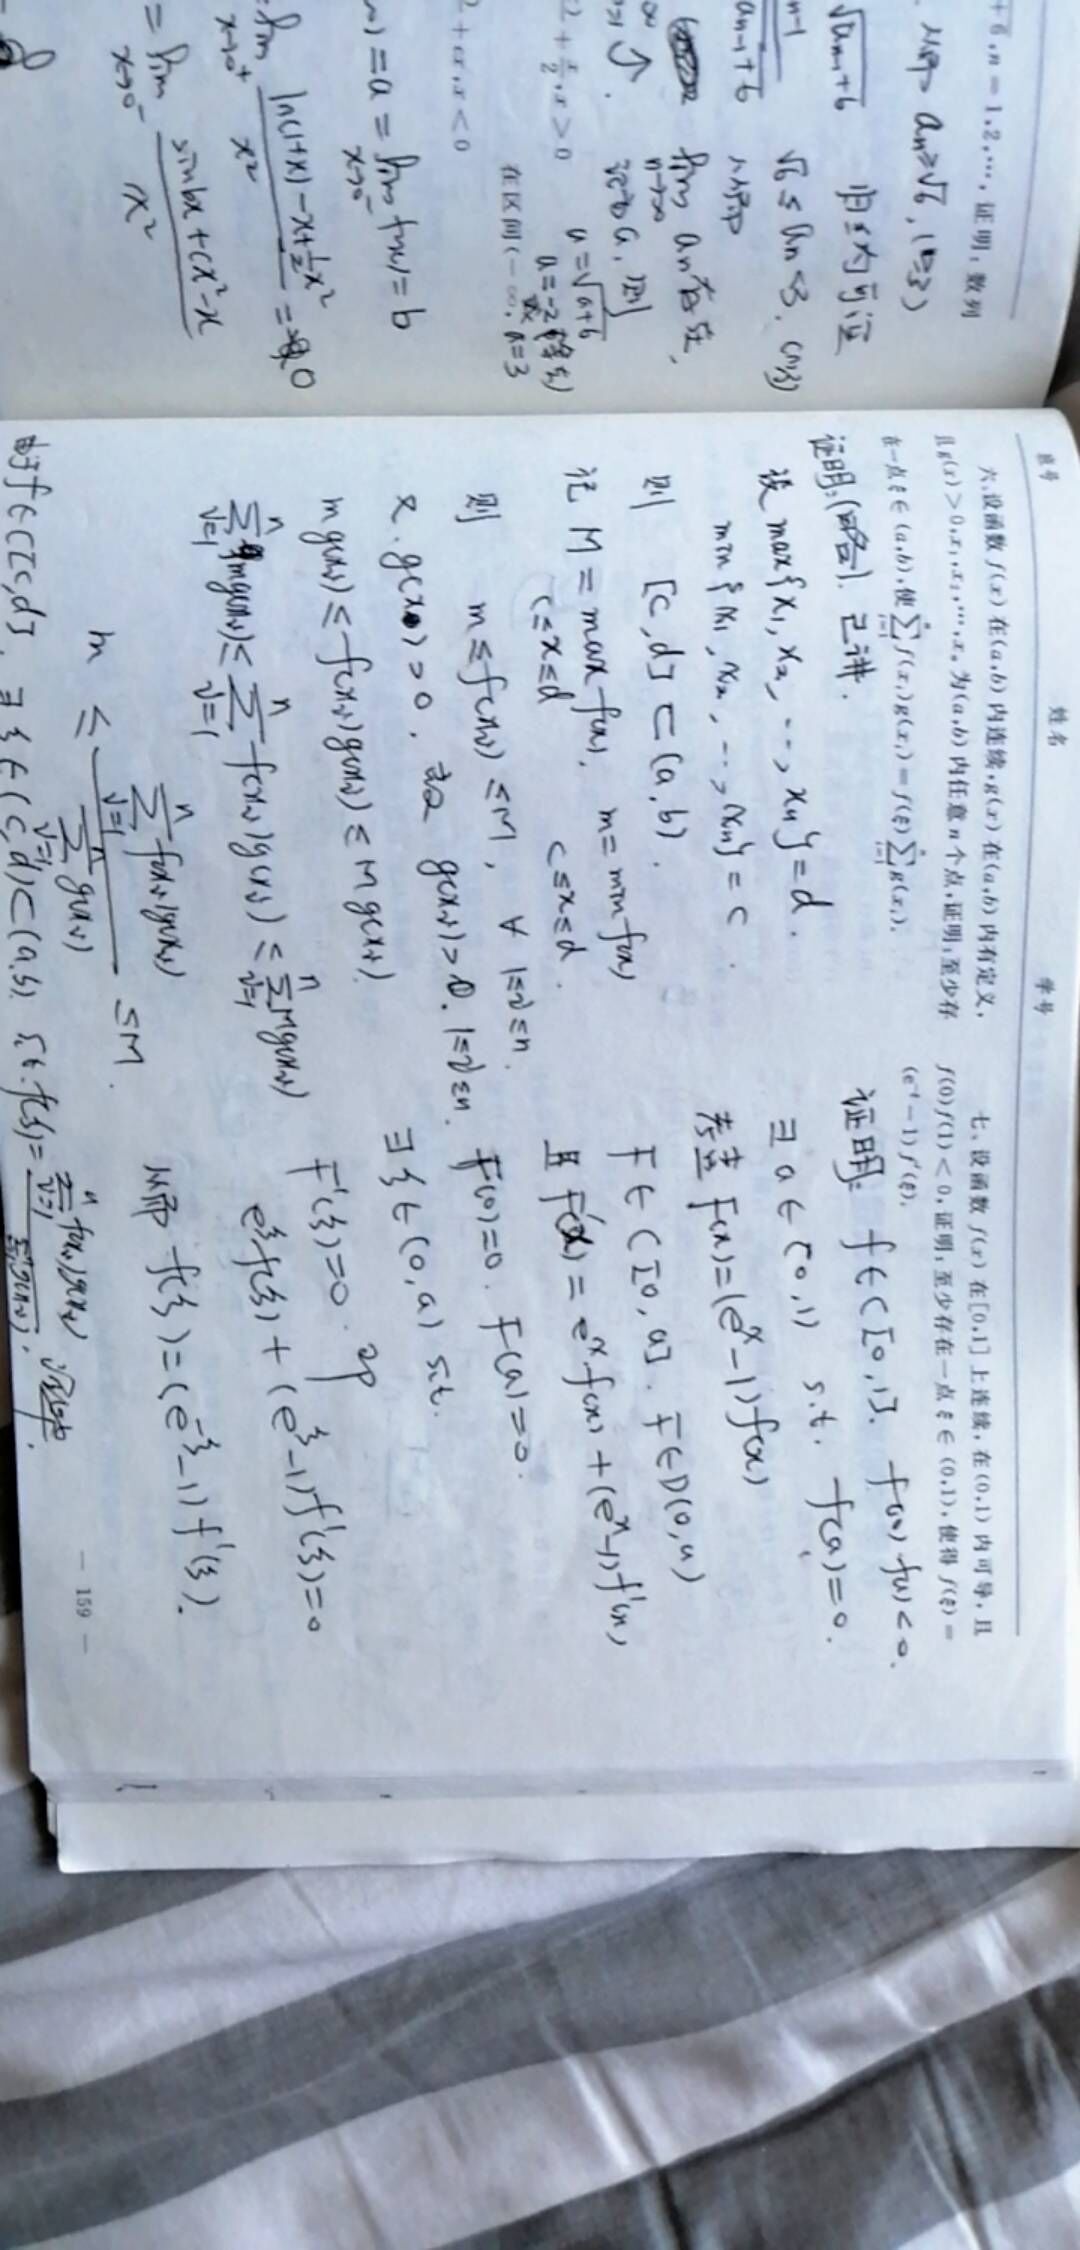 +6,n=1,2,…,证明:数列
a_n≥√6, (n≥3)
√(a_{n-1}+6) 归纳可证
√6≤a_n<3, (n≥3)
lim_{n→∞} a_n 存在,
记为a, 则
a=√(a+6)
a=-2(舍去)
a=3
+x/2,x>0
在区间(-∞,
2+cx,x<0
=a=lim_{x→0^-} f(x)=b
lim_{x→0^+} (ln(1+x)-x+½x²)/x² = 0
=lim_{x→0^-} (sinbx+cx²-x)/x²
班号 姓名 学号
六、设函数 f(x) 在(a,b) 内连续,g(x) 在(a,b) 内有定义,
且 g(x)>0,x₁,x₂,…,xₙ 为(a,b) 内任意 n 个点,证明:至少存
在一点 ξ∈(a,b),使 ∑_{i=1}^n f(x_i)g(x_i)=f(ξ)∑_{i=1}^n g(x_i).
证明:(略). 已讲.
设 max{x₁,x₂,…,xₙ}=d.
min{x₁,x₂,…,xₙ}=c.
则 [c,d]⊂(a,b).
记 M=max_{c≤x≤d} f(x), m=min_{c≤x≤d} f(x)
则 m≤f(x_i)≤M, ∀ 1≤i≤n.
又 g(x)>0, 故 g(x_i)>0. 1≤i≤n.
mg(x_i)≤f(x_i)g(x_i)≤Mg(x_i)
∑_{i=1}^n mg(x_i)≤∑_{i=1}^n f(x_i)g(x_i)≤∑_{i=1}^n Mg(x_i)
m≤(∑_{i=1}^n f(x_i)g(x_i))/(∑_{i=1}^n g(x_i))≤M.
由于f∈C[c,d], ∃ξ∈(c,d)⊂(a,b) s.t. f(ξ)=(∑_{i=1}^n f(x_i)g(x_i))/(∑_{i=1}^n g(x_i)). 证毕.
七、设函数 f(x) 在[0,1]上连续,在(0,1) 内可导,且
f(0)f(1)<0,证明:至少存在一点 ξ∈(0,1),使得 f(ξ)=
(e^{-ξ}-1)f′(ξ).
证明: f∈C[0,1]. f(0)f(1)<0.
∃ a∈(0,1) s.t. f(a)=0.
考虑 F(x)=(e^x-1)f(x)
F∈C[0,a]. F∈D(0,a)
且 F′(x)=e^x f(x)+(e^x-1)f′(x),
F(0)=0. F(a)=0.
∃ξ∈(0,a) s.t.
F′(ξ)=0. 即
e^ξ f(ξ)+(e^ξ-1)f′(ξ)=0
从而 f(ξ)=(e^{-ξ}-1)f′(ξ).
— 159 —